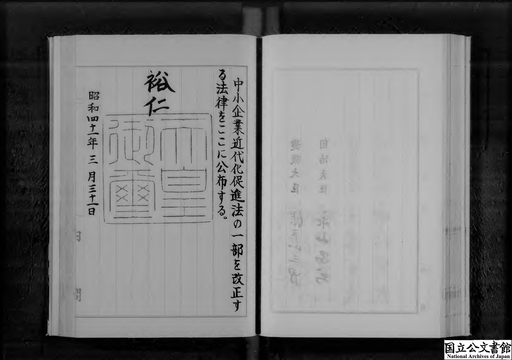 中小企業近代化促進法の一部を改正す
る法律をここに公布する。
裕仁
天皇
御璽
昭和四十一年三月三十一日
内閣
国立公文書館
National Archives of Japan